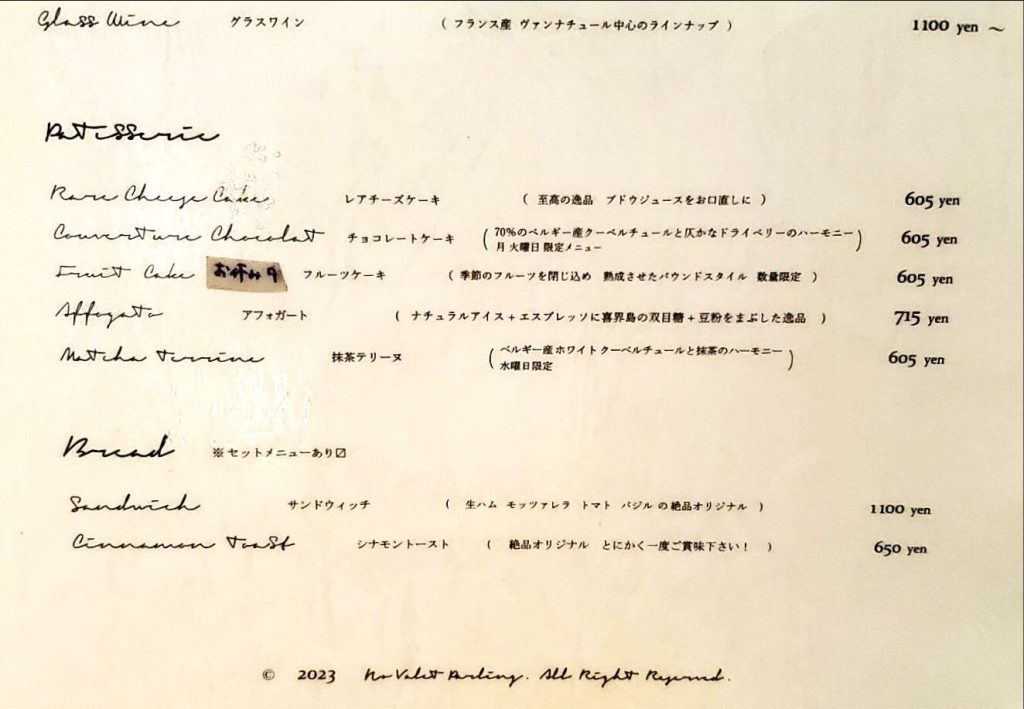 Glass Wine グラスワイン ( フランス産 ヴァンナチュール中心のラインナップ ) 1100 yen ～
Patisserie
Rare Cheese Cake レアチーズケーキ ( 至高の逸品 ブドウジュースをお口直しに ) 605 yen
Couverture Chocolat チョコレートケーキ ( 70%のベルギー産クーベルチュールと仄かなドライベリーのハーモニー
月 火曜日 限定メニュー ) 605 yen
Fruit Cake お休み中 フルーツケーキ ( 季節のフルーツを閉じ込め 熟成させたパウンドスタイル 数量限定 ) 605 yen
Affogato アフォガート ( ナチュラルアイス + エスプレッソに喜界島の双目糖 + 豆粉をまぶした逸品 ) 715 yen
Matcha terrine 抹茶テリーヌ ( ベルギー産ホワイトクーベルチュールと抹茶のハーモニー
水曜日限定 ) 605 yen
Bread ※セットメニューあり〼
Sandwich サンドウィッチ ( 生ハム モッツァレラ トマト バジル の絶品オリジナル ) 1100 yen
Cinnamon toast シナモントースト ( 絶品オリジナル とにかく一度ご賞味下さい！ ) 650 yen
© 2023 No Valet Parking. All Right Reserved.